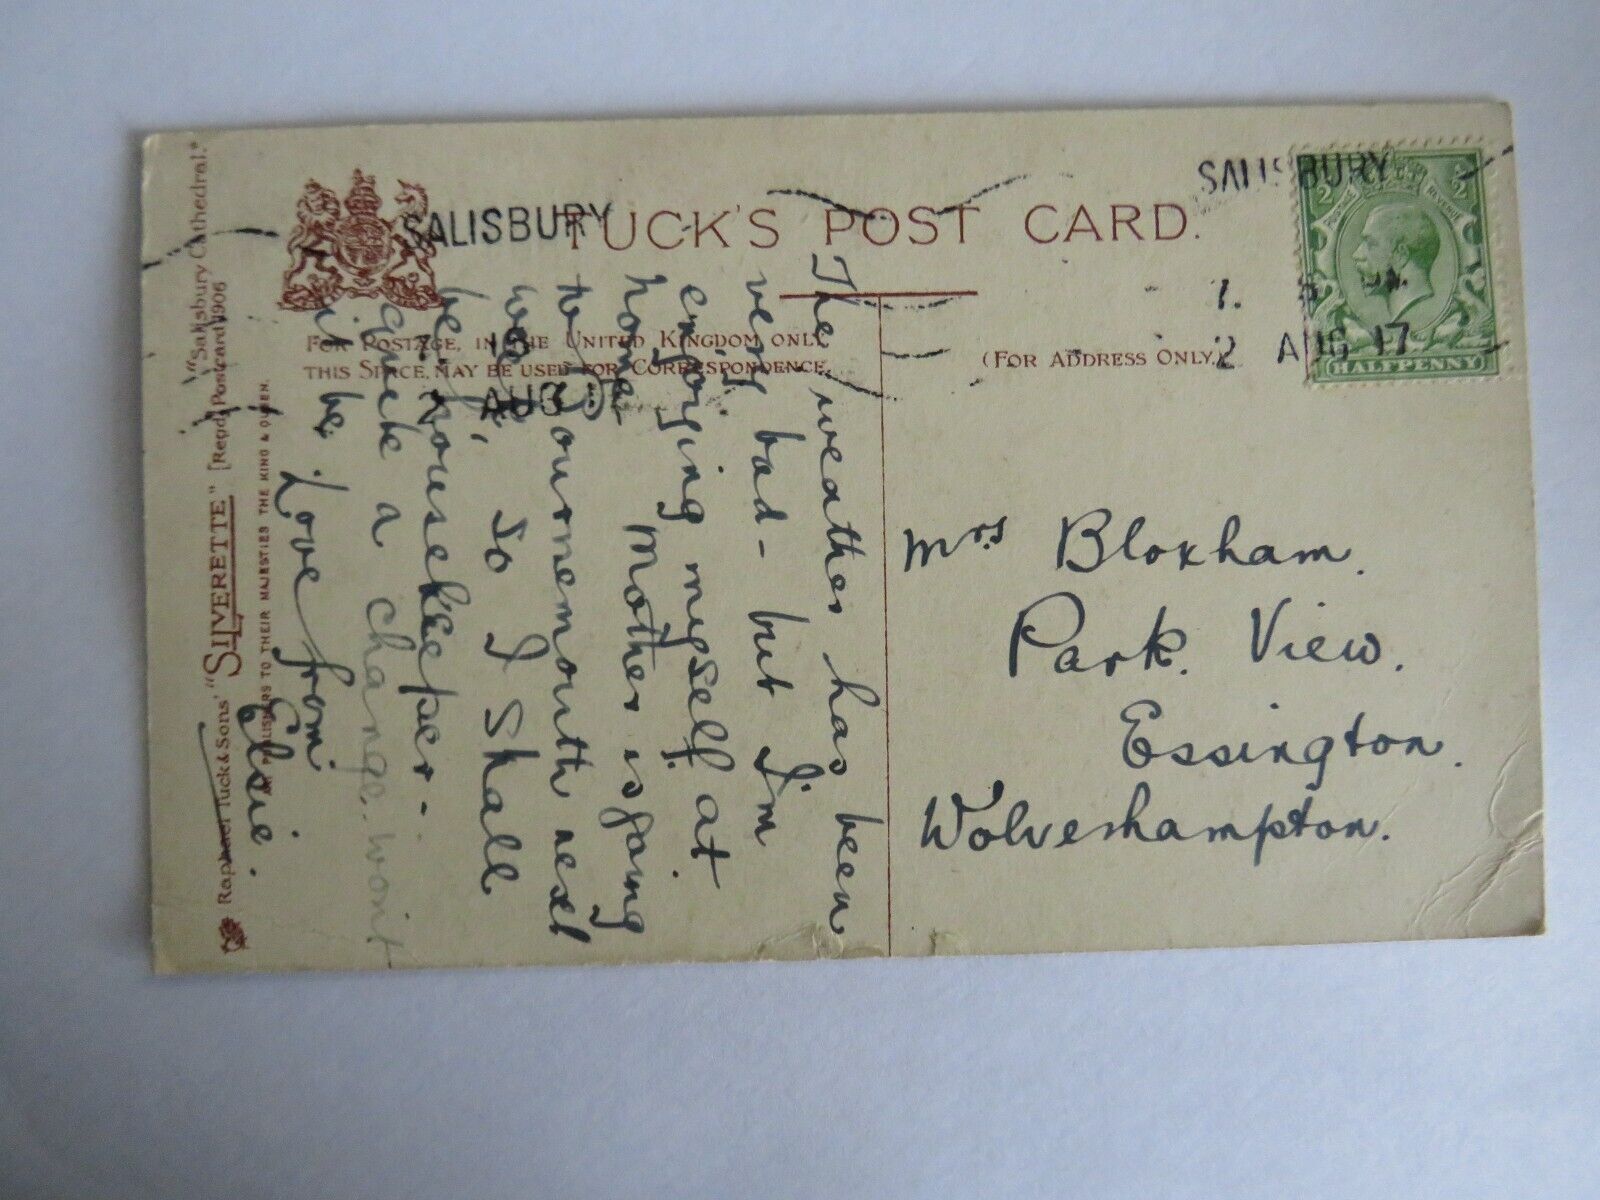 TUCK'S POST CARD.
FOR POSTAGE, IN THE UNITED KINGDOM ONLY,
THIS SPACE MAY BE USED FOR CORRESPONDENCE.
(FOR ADDRESS ONLY.)
SALISBURY
AUG
SALISBURY
2 AUG 17
HALFPENNY
The weather has been
very bad - but I'm
enjoying myself at
home. Mother is going
to Bournemouth next
so I Shall
be housekeeper -
quite a change. won't
it be. Love from
Elsie.
Mrs Bloxham.
Park. View.
Essington.
Wolverhampton.
Raphael Tuck & Sons' "SILVERETTE" [Regd.] Postcard 1906 "Salisbury Cathedral."
ART PUBLISHERS TO THEIR MAJESTIES THE KING & QUEEN.